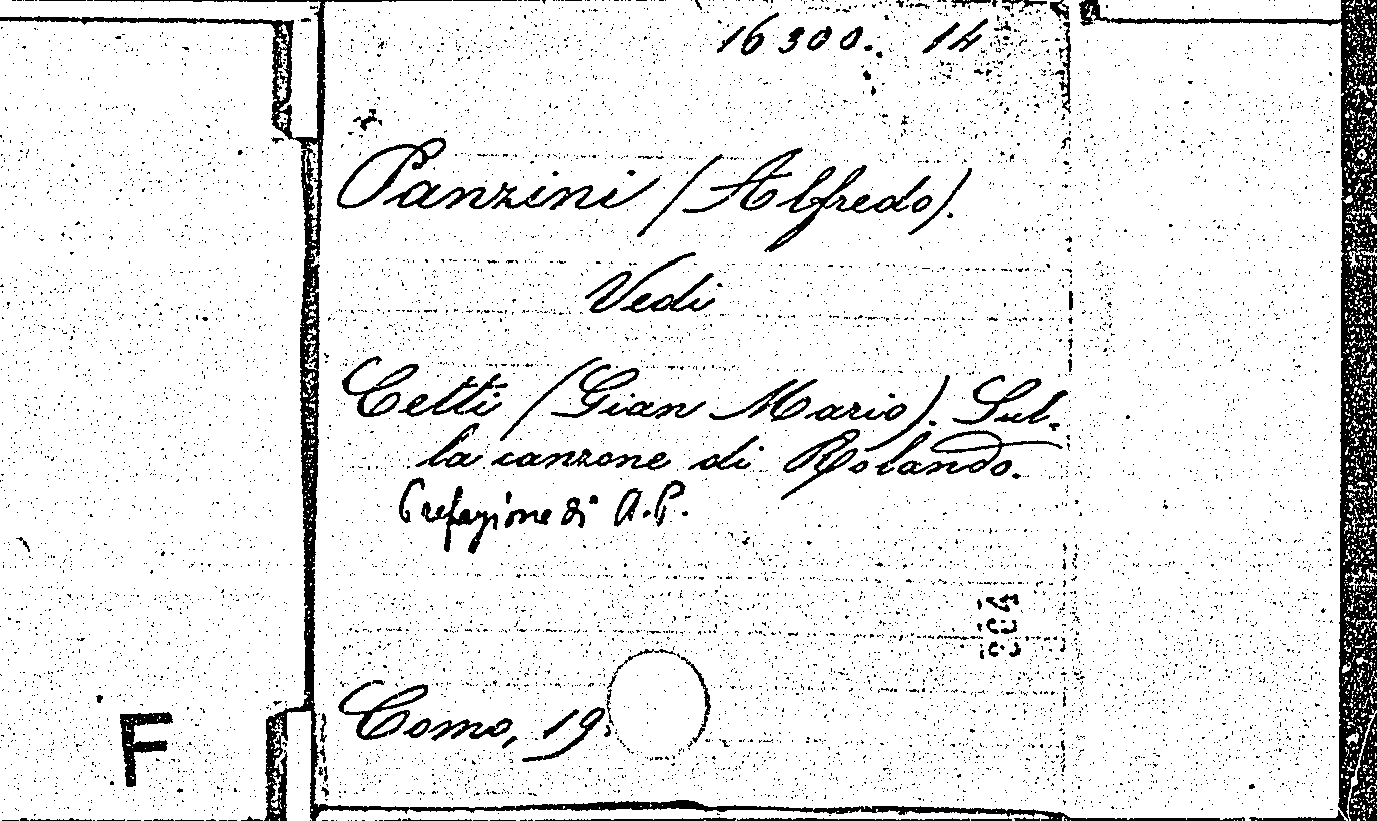 16300. 14
Panzini (Alfredo).
Vedi
Cetti (Gian Mario). Sul-
la canzone di Rolando.
Prefazione di A.P.
304
Como, 19
F